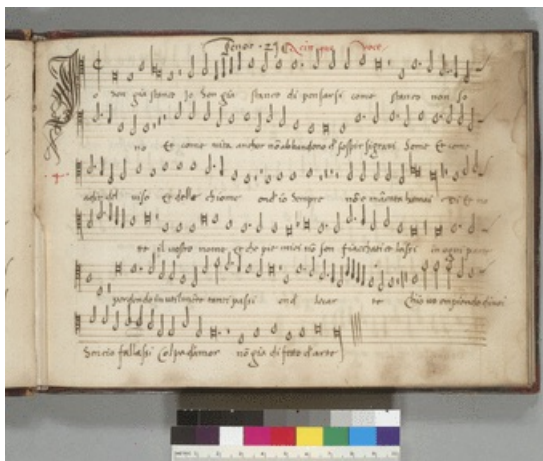 Tenor · 21 A cinque voce
o son gia stanco Io son gia stanco di pensar si come stanco non so
no Et come vita anchor nõ abbandono d sospir si gravi some Et come
a dir del viso Et delle chiome ond'io sempre nõ e mãcata homai Di Et no
te il vostro nome et che pie miei nõ son fiacchati et lassi in ogni parte
perdendo inutilmẽte tanti passi onde le car te Chio vo empiendo di voi
Sencio fallassi Colpa d'amor nõ gia difetto d'arte